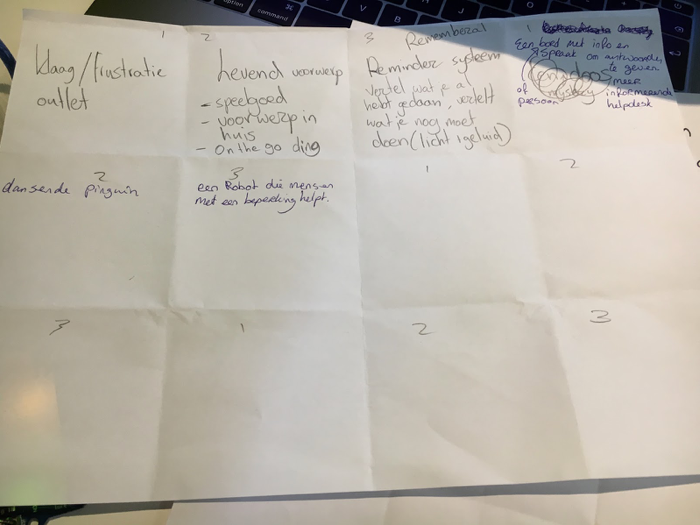 1
klaag/frustratie
outlet
2
hevend voorwerp
- speelgoed
- voorwerp in
huis
- On the go ding
3
Rememberal
Reminder systeem
Vertel wat je al
hebt gedaan, vertelt
wat je nog moet
doen (licht + geluid)
1
Een bord met info en
spraak om antwoorden
te geven
of
persoon
meer
informerende
helpdesk
2
dansende pinguin
3
een Robot die mensen
met een beperking helpt.
1
2
3
1
2
3
option
command